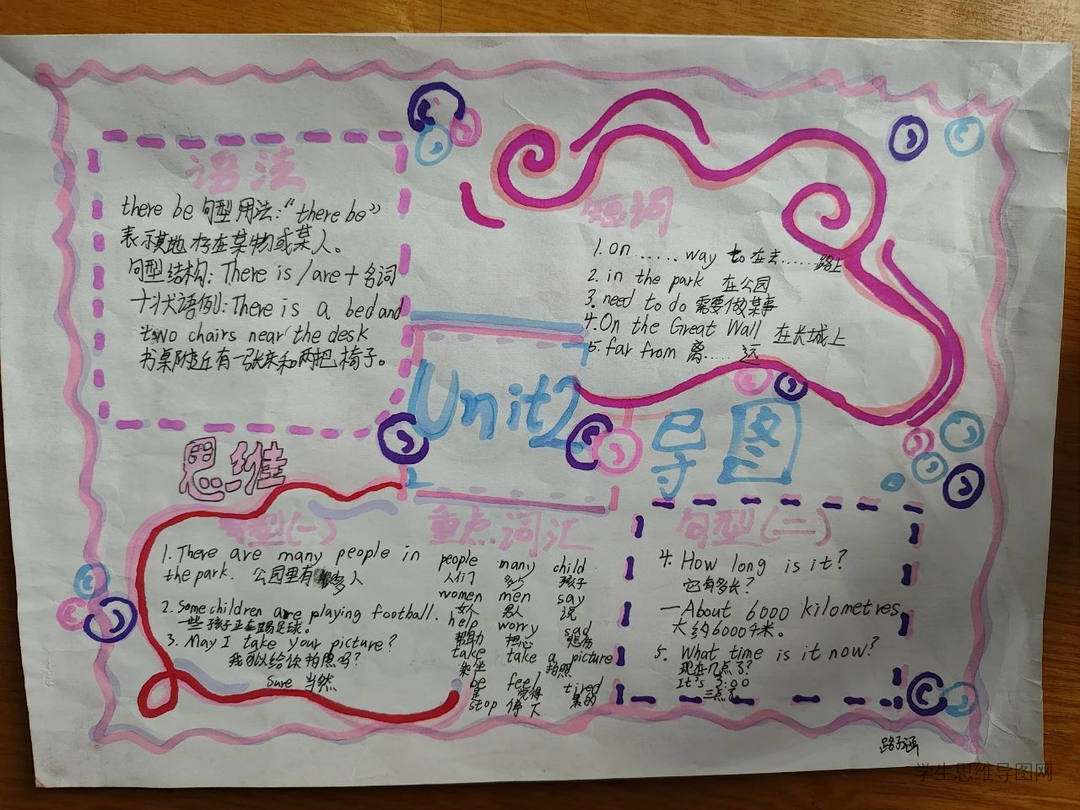 语法
there be 句型用法:“there be”
表示某地存在某物或某人。
句型结构: There is /are + 名词
+状语例: There is a bed and
two chairs near the desk
书桌附近有一张床和两把椅子。
短词
1. on ...... way to 在去......路上
2. in the park 在公园
3. need to do 需要做某事
4. On the Great Wall 在长城上
5. far from 离..... 远
Unit2
思维
导图
句型(一)
1. There are many people in
the park. 公园里有很多人
2. Some children are playing football.
一些孩子正在踢足球。
3. May I take your picture?
我可以给你拍照吗?
Sure 当然
重点词汇
people many child
人们 多少 孩子
women men say
女人 男人 说
help worry sad
帮助 担心 悲伤
take take a picture
乘坐 拍照
be feel tired
是 觉得 累的
stop 停下
句型(二)
4. How long is it?
它有多长?
—About 6000 kilometres,
大约6000千米。
5. What time is it now?
现在几点了?
It's 3:00
三点了
路子涵
学生思维导图网